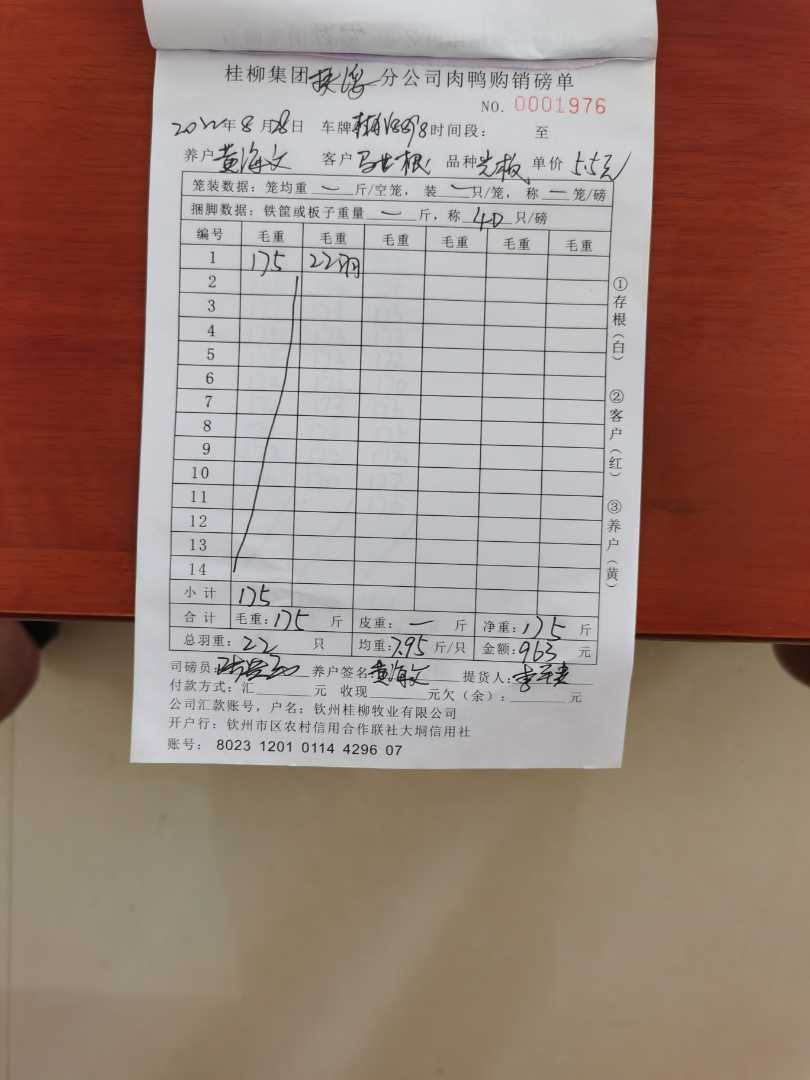 桂柳集团 分公司肉鸭购销磅单
NO. 0001976
2022年8月28日 车牌 时间段: 至
养户黄海文 客户 根 品种光板 单价5.5元
笼装数据: 笼均重 一 斤/空笼, 装 一 只/笼, 称 一 笼/磅
捆脚数据: 铁筐或板子重量 一 斤, 称 40 只/磅
编号 毛重 毛重 毛重 毛重 毛重 毛重
1 175 22羽
2
3
4
5
6
7
8
9
10
11
12
13
14
小计 175
合计 毛重: 175 斤 皮重: 一 斤 净重: 175 斤
总羽重: 22 只 均重: 7.95 斤/只 金额: 963 元
司磅员: 养户签名 黄海文 提货人:
付款方式: 汇 元 收现 元欠(余): 元
公司汇款账号, 户名: 钦州桂柳牧业有限公司
开户行: 钦州市区农村信用合作联社大垌信用社
账号: 8023 1201 0114 4296 07
①存根(白) ②客户(红) ③养户(黄)